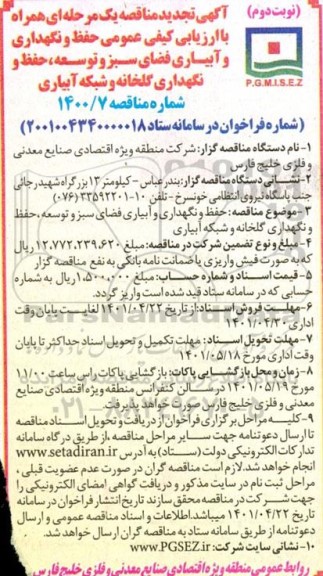 (نوبت دوم)
آگهی تجدید مناقصه یک مرحله ای همراه
با ارزیابی کیفی عمومی حفظ و نگهداری
و آبیاری فضای سبز و توسعه، حفظ و
نگهداری گلخانه و شبکه آبیاری
P.G.M.I.S.E.Z
شماره مناقصه ۱۴۰۰/۷
(شماره فراخوان در سامانه ستاد ۲۰۰۱۰۰۴۳۴۰۰۰۰۱۸)
۱- نام دستگاه مناقصه گزار: شرکت منطقه ویژه اقتصادی صنایع معدنی
و فلزی خلیج فارس
۲- نشانی دستگاه مناقصه گزار: بندرعباس - کیلومتر ۱۳ بزرگراه شهید رجائی
جنب پاسگاه نیروی انتظامی خونسرخ - تلفن ۱۰-۳۳۵۹۲۲۰۱ (۰۷۶)
۳- موضوع مناقصه: حفظ و نگهداری و آبیاری فضای سبز و توسعه، حفظ
و نگهداری گلخانه و شبکه آبیاری
۴- مبلغ و نوع تضمین شرکت در مناقصه: مبلغ ۱۲,۷۷۲,۲۳۹,۶۲۰ ریال
که به صورت فیش واریزی یا ضمانت نامه بانکی به نفع مناقصه گزار
۵- قیمت اسناد و شماره حساب: مبلغ ۱,۵۰۰,۰۰۰ ریال به شماره
حسابی که در سامانه ستاد قید شده است واریز گردد.
۶- مهلت فروش اسناد: از تاریخ ۱۴۰۱/۰۴/۲۲ لغایت پایان وقت
اداری ۱۴۰۱/۰۴/۳۰
۷- مهلت تحویل اسناد: مهلت تکمیل و تحویل اسناد حداکثر تا پایان
وقت اداری مورخ ۱۴۰۱/۰۵/۱۸
۸- زمان و محل بازگشایی پاکات: بازگشایی پاکات راس ساعت ۱۱/۰۰
مورخ ۱۴۰۱/۰۵/۱۹ در سالن کنفرانس منطقه ویژه اقتصادی صنایع
معدنی و فلزی خلیج فارس صورت خواهد پذیرفت
۹- کلیه مراحل برگزاری فراخوان از دریافت و تحویل اسناد مناقصه
تا ارسال دعوتنامه جهت سایر مراحل مناقصه، از طریق درگاه سامانه
تدارکات الکترونیکی دولت (ستاد) به آدرس www.setadiran.ir
انجام خواهد شد. لازم است مناقصه گران در صورت عدم عضویت قبلی،
مراحل ثبت نام در سایت مذکور و دریافت گواهی امضای الکترونیکی را
جهت شرکت در مناقصه محقق سازند تاریخ انتشار فراخوان در سامانه
تاریخ ۱۴۰۱/۰۴/۲۲ میباشد. اطلاعات و اسناد مناقصه عمومی و ارسال
دعوتنامه از طریق سامانه ستاد به مناقصه گران ارسال خواهد شد.
۱۰- نشانی سایت شرکت: www.PGSEZ.ir
روابط عمومی منطقه ویژه اقتصادی صنایع معدنی و فلزی خلیج فارس